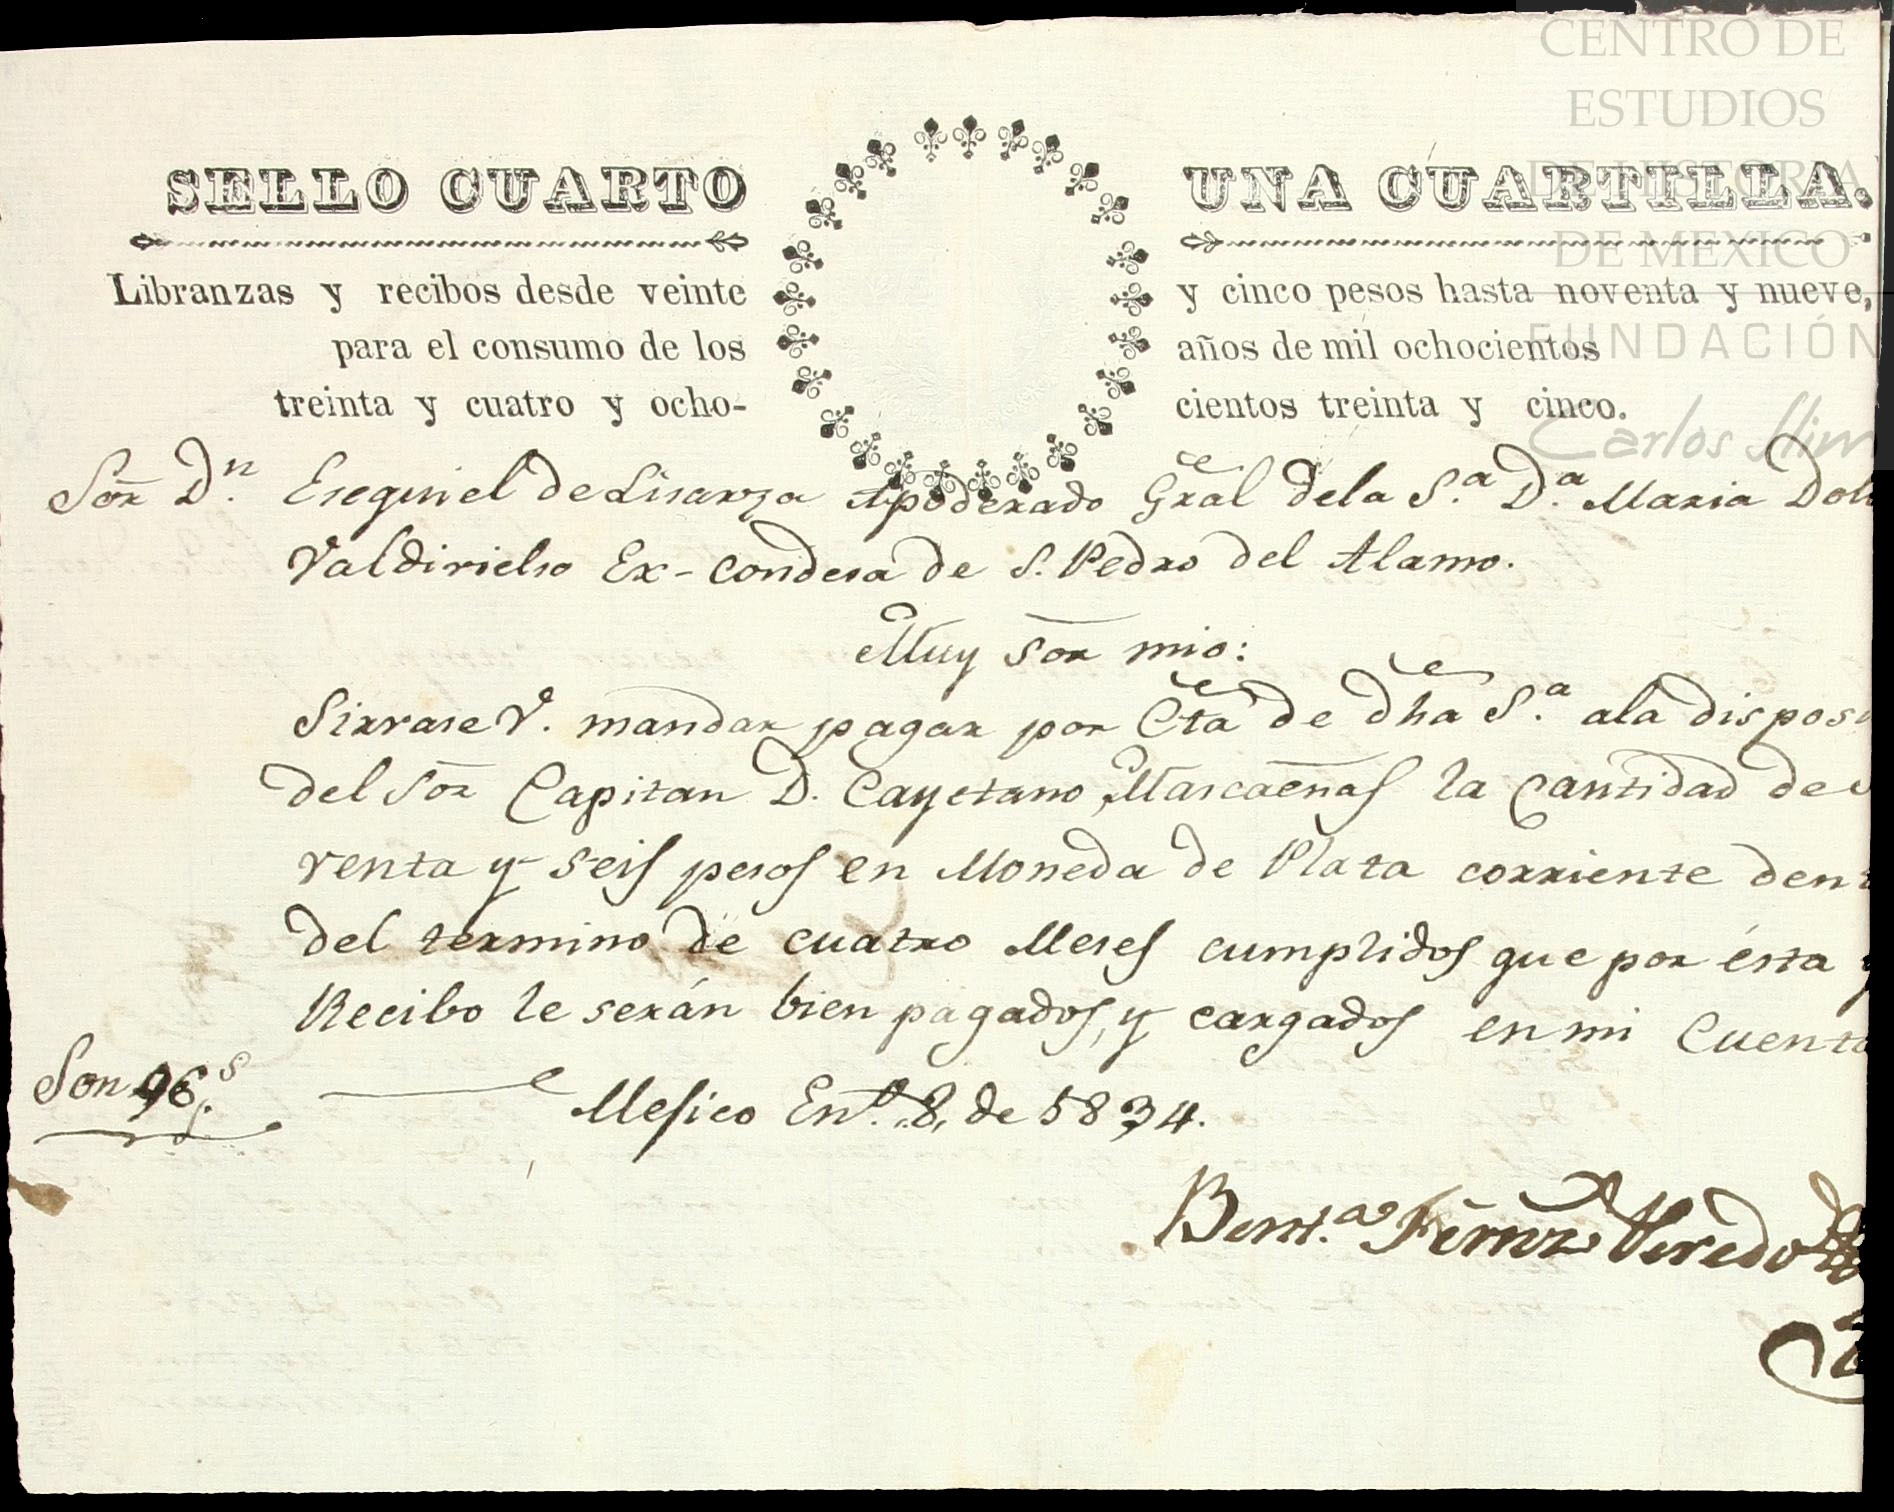 CENTRO DE
ESTUDIOS
DE HISTORIA
DE MEXICO
FUNDACIÓN
Carlos Slim
SELLO CUARTO UNA CUARTILLA.
Libranzas y recibos desde veinte y cinco pesos hasta noventa y nueve,
para el consumo de los años de mil ochocientos
treinta y cuatro y ocho- cientos treinta y cinco.
Sor Dn. Esequiel de Lisarza Apoderado Gral dela S.a D.a Maria Dol
Valdivielso Ex-Condesa de S. Pedro del Alamo.
Muy Sor mio:
Sirvase V. mandar pagar por Cta de dha S.a ala dispos
del Sor Capitan D. Cayetano Mascareñas la Cantidad de
venta y seis pesos en Moneda de Plata corriente dent
del termino de cuatro Meses cumplidos que por ésta y
Recibo le serán bien pagados, y cargados en mi Cuenta
Son 96 ps.
Mesico En.o 8, de 1834.
Bent.a Fernz